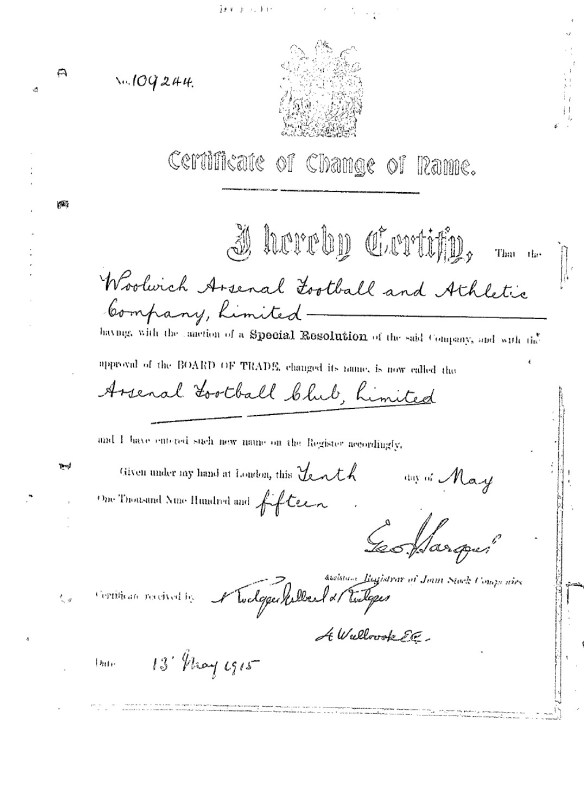 No. 109244.
Certificate of Change of Name.
I hereby Certify, That the
Woolwich Arsenal Football and Athletic
Company, Limited
having, with the sanction of a Special Resolution of the said Company, and with the
approval of the BOARD OF TRADE, changed its name, is now called the
Arsenal Football Club, Limited
and I have entered such new name on the Register accordingly.
Given under my hand at London, this Tenth day of May
One Thousand Nine Hundred and fifteen.
Geo
Assistant Registrar of Joint Stock Companies
Certificate received by
Wallbrook E.C.
Date 13 May 1915